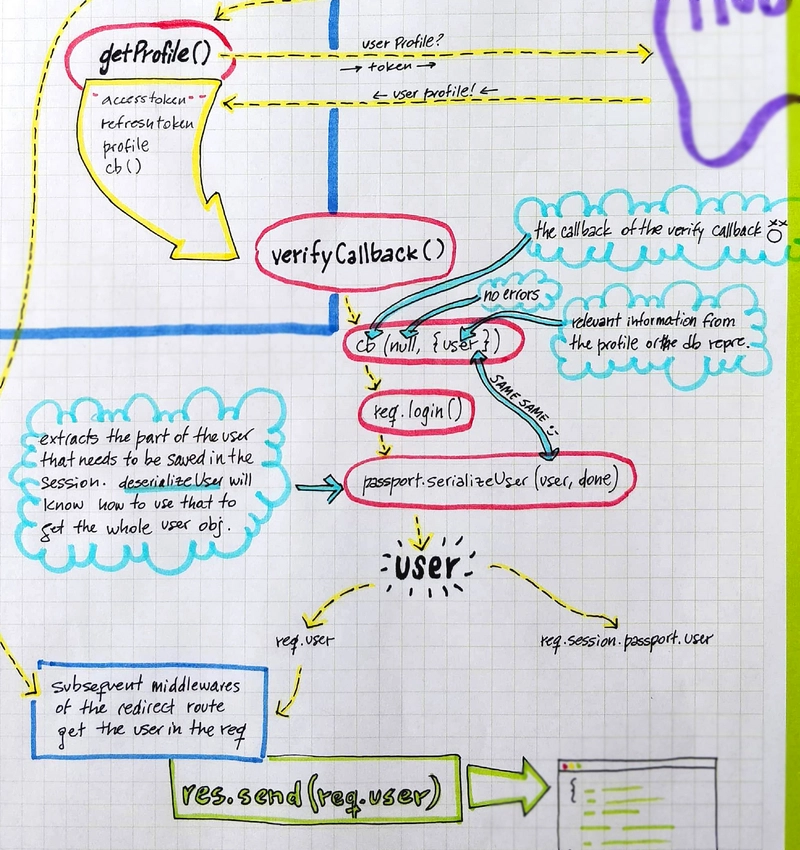 getProfile()
user Profile?
→ token →
← user profile! ←
accesstoken
refreshtoken
profile
cb()
verifyCallback()
the callback of the verify callback
no errors
relevant information from
the profile or the db repre.
cb (null, {user})
req.login()
SAME SAME
extracts the part of the user
that needs to be saved in the
session. deserializeUser will
know how to use that to
get the whole user obj.
passport.serializeUser (user, done)
user
req.user
req.session.passport.user
subsequent middlewares
of the redirect route
get the user in the req
res.send(req.user)
{